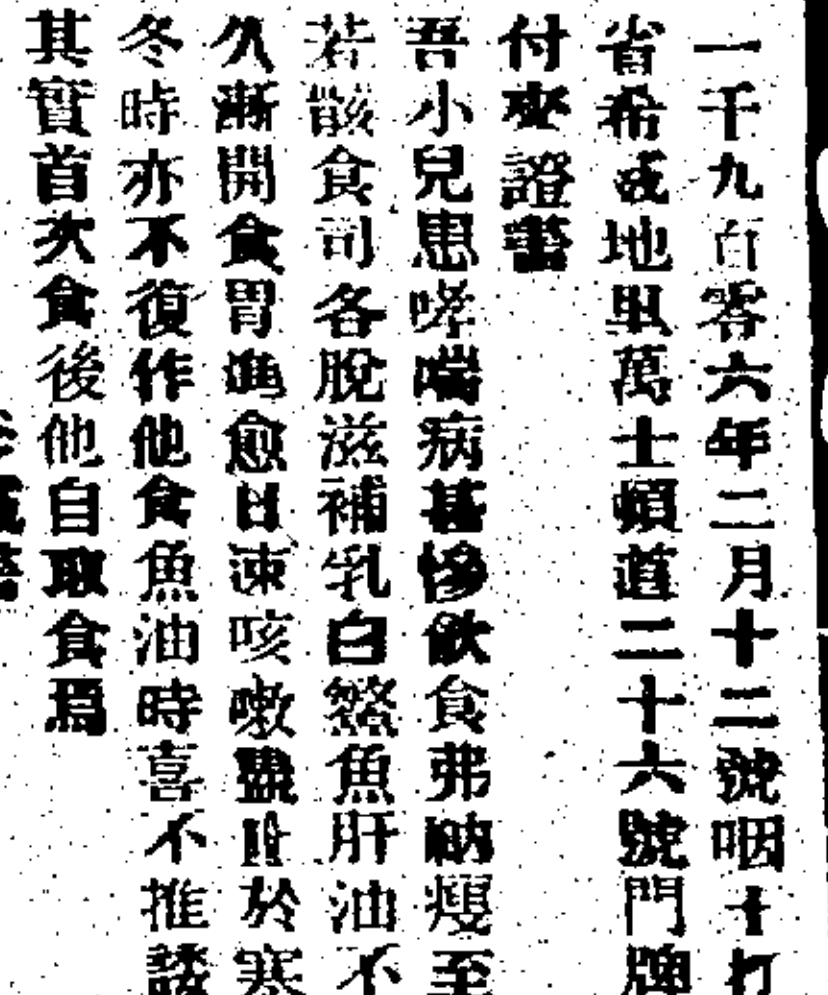 一千九百零六年二月十二號咽士打
省希戎地里萬士頓道二十六號門牌
付來證書
吾小兒患哮喘病甚慘飲食弗納瘦至
若骸食司各脫滋補乳白鰵魚肝油不
久漸開食胃進愈日速咳嗽盡除於寒
冬時亦不復作他食魚油時喜不推諉
其實首次食後他自取食焉